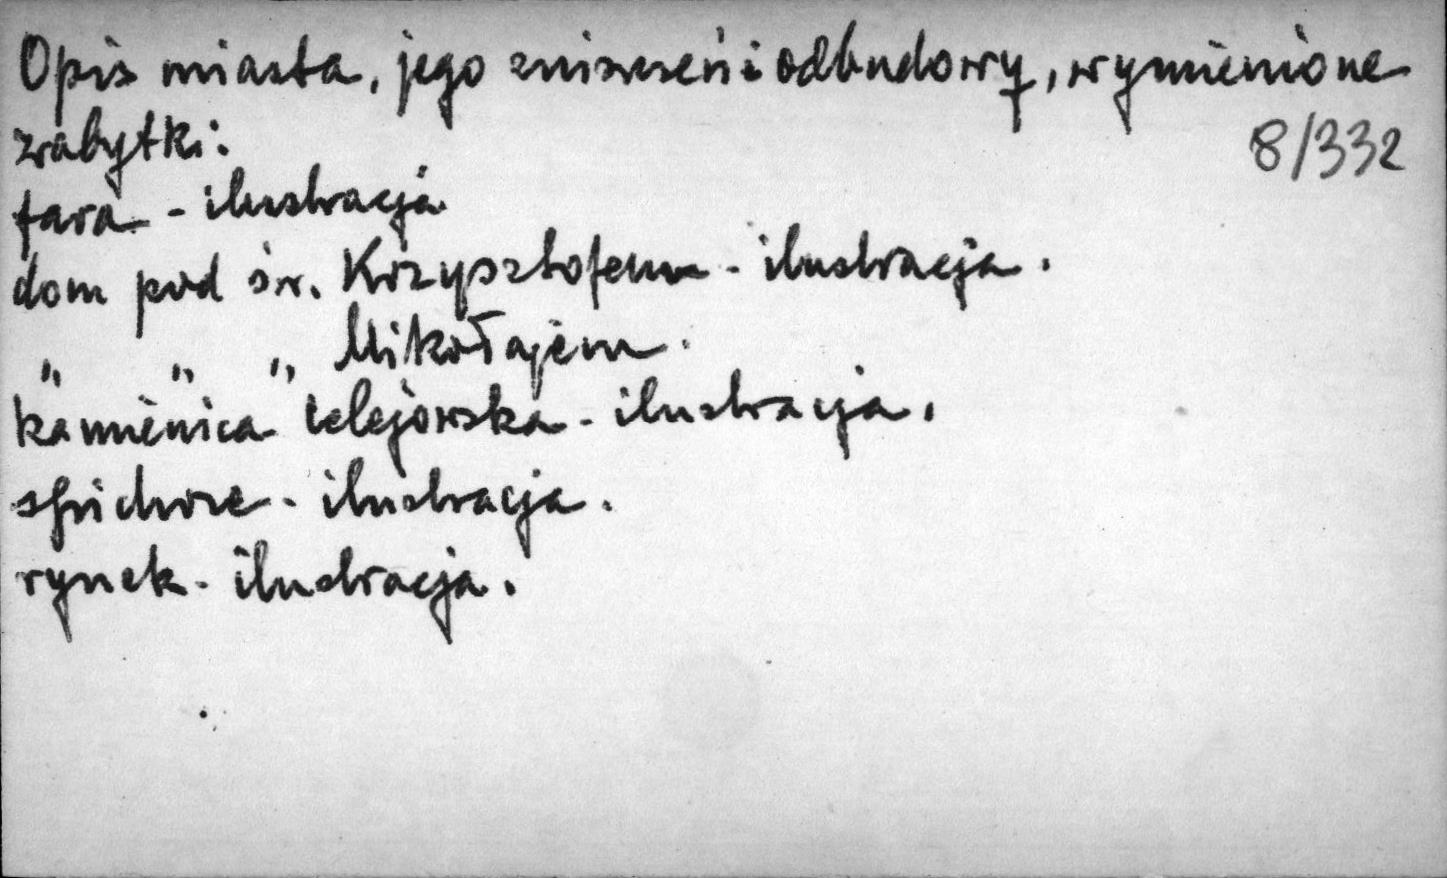 Opis miasta, jego zniszczeń i odbudowy, wymienione
zabytki:
8/332
fara - ilustracja
dom pod św. Krzysztofem - ilustracja.
" " " Mikołajem.
kamienica celejowska - ilustracja.
spichrze - ilustracja.
rynek - ilustracja.